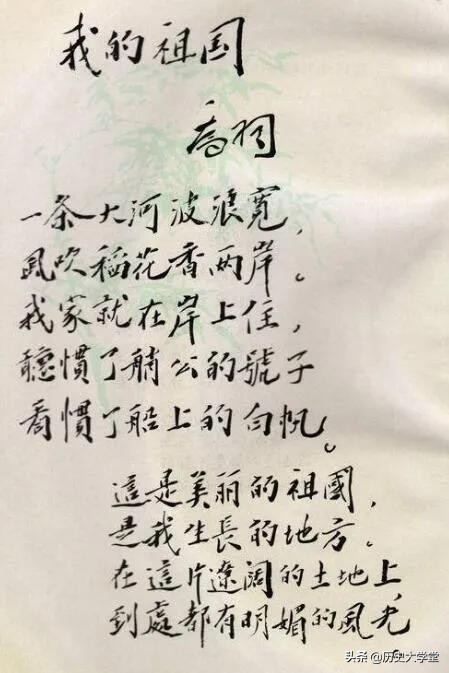 我的祖国
乔羽
一条大河波浪寬，
風吹稻花香两岸。
我家就在岸上住，
聽慣了艄公的號子
看慣了船上的白帆。
這是美丽的祖國，
是我生長的地方。
在這片遼阔的土地上，
到處都有明媚的風光。
头条 @历史大学堂